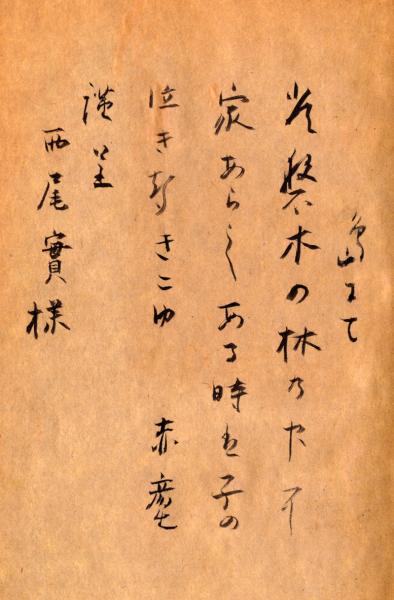 島にて
常磐木の林のなかに
家あらしある時は子の
泣き声きこゆ　赤彦
謹呈
西尾實様